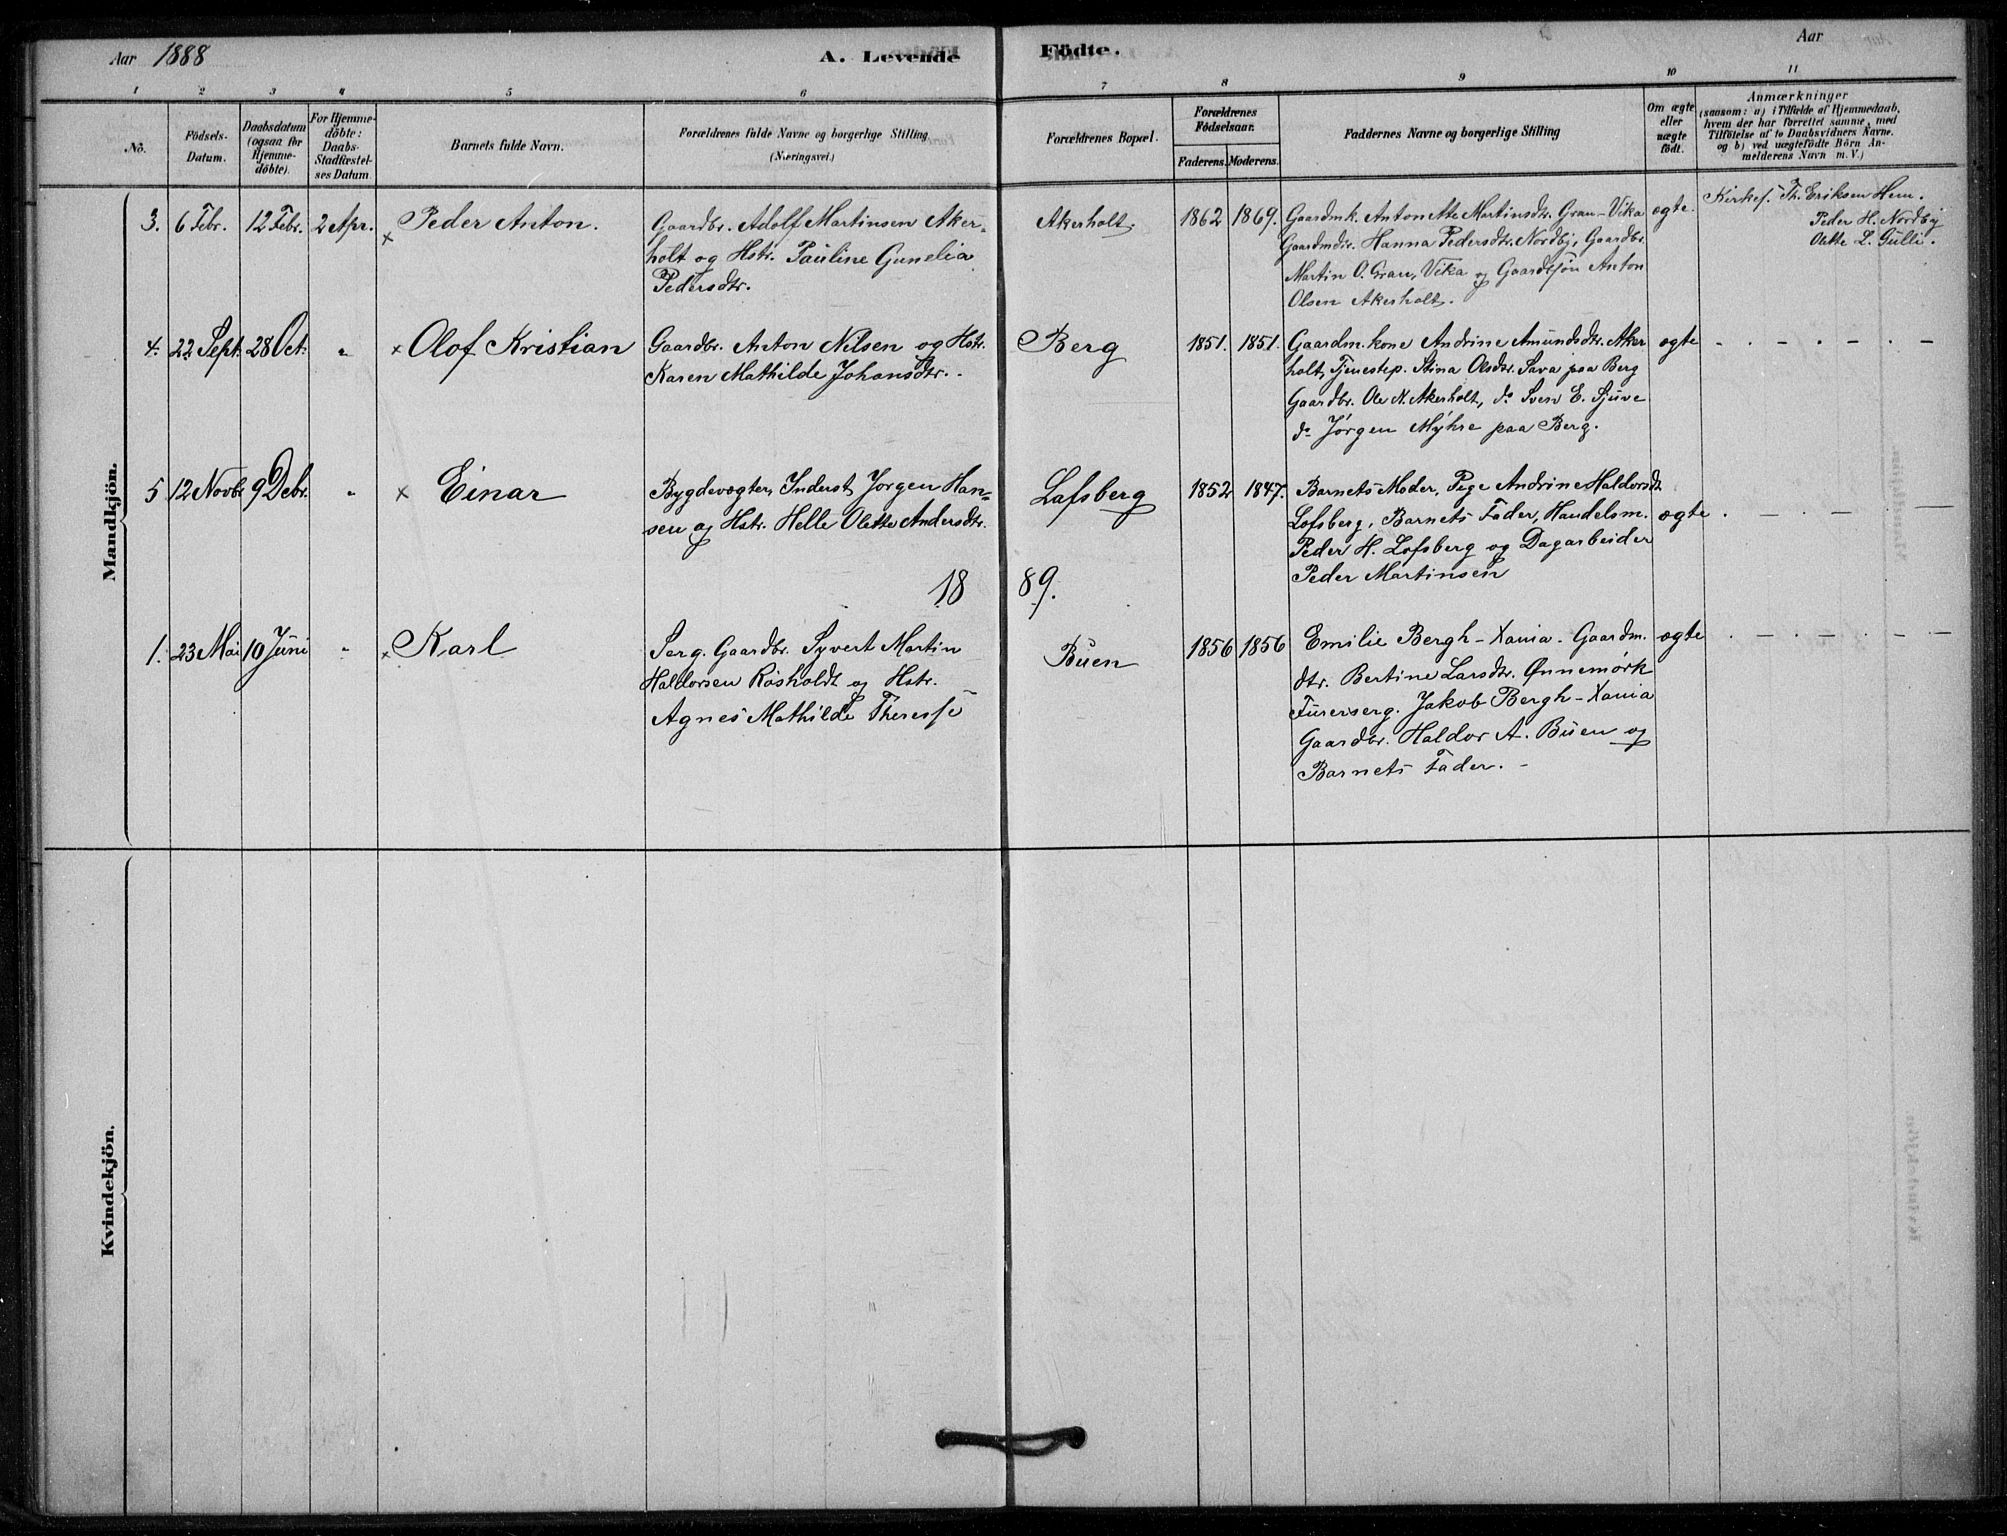 Aar 1888
A. Levende Födte.
Aar
1 2 3 4 5 6 7 8 9 10 11
No.
Födsels-
Datum.
Daabsdatum
(ogsaa for
Hjemme-
döbte).
For Hjemme-
döbte:
Daabs-
Stadfæstel-
ses Datum
Barnets fulde Navn.
Forældrenes fulde Navne og borgerlige Stilling
(Næringsvei.)
Forældrenes Bopæl.
Forældrenes
Födselsaar.
Faderens. Moderens.
Faddernes Navne og borgerlige Stilling
Om ægte
eller
uægte
födt.
Anmærkninger
(saasom: a) i Tilfælde af Hjemmedaab,
hvem der har forrettet samme, med
Tilföielse af to Daabsvidners Navne.
og b) ved uægtefödte Börn An-
melderens Navn m. V.)
Mandkjön.
3. 6 Febr. 12 Febr. 2 Apr. × Peder Anton.
Gaardbr. Adolf Martinsen Aker-
holt og Hstr. Pauline Gunelia
Pedersdtr.
Akerholt. 1862 1869.
Gaardmk. Antonette Martinsdtr. Gran-Vika
Gaardmdtr. Hanna Pedersdtr. Nordby, Gaardbr.
Martin O. Gran, Vika og Gaardbsøn Anton
Olsen Akerholt.
ægte.
Kirkes. Th. Eriksen Hem.
Peder H. Nordby
Olette L. Gulli.
4. 22 Sept. 28 Oct. " × Olof Kristian
Gaardbr. Anton Nilsen og Hstr.
Karen Mathilde Johansdtr. -
Berg 1851. 1851.
Gaardm. kone Andrine Amundsdtr. Aker
holt, Tjenestep. Stina Olsdtr. Sava paa Berg
Gaardbr. Ole N. Akerholt, do Sven E. Sjuve
do Jørgen Myhre paa Berg.
ægte - . - . - . - . -
5 12 Novbr 9 Debr. " × Einar
Bygdevægter, Inderst Jørgen Han-
sen og Hstr. Helle Olette Andersdtr.
Lofsberg 1852 1847.
Barnets Moder, Pige Andrine Haldorsdt
Lofsberg, Barnets Fader, Handelsm.
Peder H. Lofsberg og Dagarbeider
Peder Martinsen
ægte . - . - . -
1889.
1. 23 Mai 10 Juni " × Karl
Serg. Gaardbr. Syvert Martin
Haldorsen Røsholdt og Hstr.
Agnes Mathilde Therese
Buen 1856 1856
Emilie Bergh - Xania. Gaardm.
dtr. Bertine Larsdtr. Ønnemørk
Furerserg. Jakob Bergh - Xania
Gaardbr. Haldor A. Buen og
Barnets Fader. -
ægte . - . - . - . -
Kvindekjön.